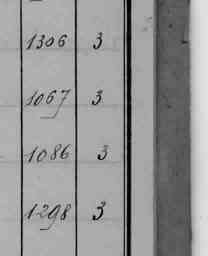 1306 3
1067 3
1086 3
1298 3